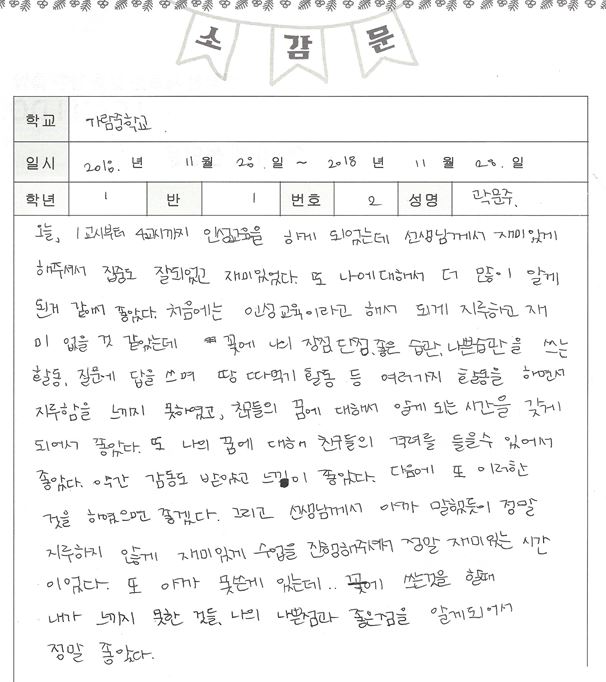 소감문
학교 가람중학교.
일시 2018. 년 11 월 28. 일 ~ 2018 년 11 월 28. 일
학년 1 반 1 번호 2 성명 곽문주.
오늘, 1교시부터 4교시까지 인성교육을 하게 되었는데 선생님께서 재미있게
해주셔서 집중도 잘되었고 재미있었다. 또 나에대해서 더 많이 알게
된거 같애서 좋았다. 처음에는 인성교육이라고 해서 되게 지루하고 재
미 없을 것 같았는데 꽃에 나의 장점,단점,좋은 습관,나쁜습관을 쓰는
활동, 질문에 답을 쓰며 땅 따먹기 활동 등 여러가지 활동을 하면서
지루함을 느끼지 못하였고, 친구들의 꿈에 대해서 알게 되는 시간을 갖게
되어서 좋았다. 또 나의 꿈에 대해 친구들의 격려를 들을수 있어서
좋았다. 약간 감동도 받았고 느낌이 좋았다. 다음에 또 이러한
것을 하였으면 좋겠다. 그리고 선생님께서 아까 말했듯이 정말
지루하지 않게 재미있게 수업을 진행해주셔서 정말 재미있는 시간
이었다. 또 아까 못쓴게 있는데.. 꽃에 쓰는것을 할때
내가 느끼지 못한 것들, 나의 나쁜점과 좋은점을 알게되어서
정말 좋았다.